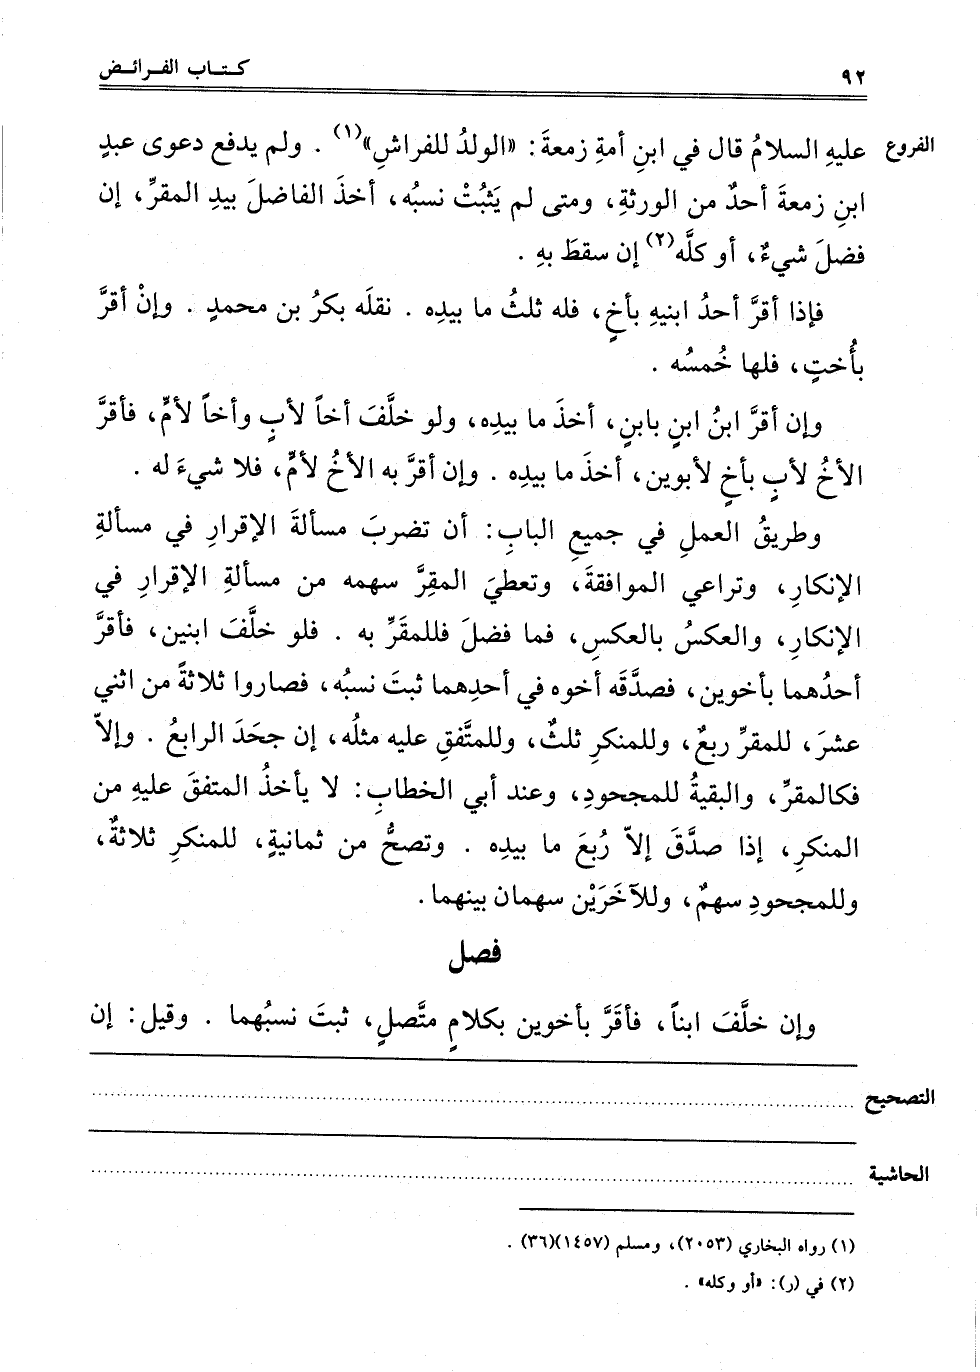 ٩٢
كتاب الفرائض
الفروع
عليهِ السلامُ قال في ابنِ أمةِ زمعةَ: «الولدُ للفراشِ»(١) . ولم يدفع دعوى عبدِ
ابنِ زمعةَ أحدٌ من الورثةِ، ومتى لم يَثبُتْ نسبُه، أخذَ الفاضلَ بيدِ المقرِّ، إن
فضلَ شيءٌ، أو كلَّه(٢) إن سقطَ بهِ .
فإذا أقرَّ أحدُ ابنيهِ بأخٍ، فله ثلثُ ما بيدِه . نقلَه بكرُ بن محمدٍ . وإنْ أقرَّ
بأُختٍ، فلها خُمسُه .
وإن أقرَّ ابنُ ابنٍ بابنٍ، أخذَ ما بيدِه، ولو خلَّفَ أخاً لأبٍ وأخاً لأمٍّ، فأقرَّ
الأخُ لأبٍ بأخٍ لأبوين، أخذَ ما بيدِه . وإن أقرَّ به الأخُ لأمٍّ، فلا شيءَ له .
وطريقُ العملِ في جميعِ البابِ: أن تضربَ مسألةَ الإقرارِ في مسألةِ
الإنكارِ، وتراعي الموافقةَ، وتعطيَ المقِرَّ سهمه من مسألةِ الإقرارِ في
الإنكارِ، والعكسُ بالعكسِ، فما فضلَ فللمقَرِّ به . فلو خلَّفَ ابنين، فأقرَّ
أحدُهما بأخوين، فصدَّقَه أخوه في أحدِهما ثبتَ نسبُه، فصاروا ثلاثةً من اثني
عشرَ، للمقرِّ ربعٌ، وللمنكرِ ثلثٌ، وللمتَّفقِ عليه مثلُه، إن جحَدَ الرابعُ . وإلاّ
فكالمقرِّ، والبقيةُ للمجحودِ، وعند أبي الخطابِ: لا يأخذُ المتفقَ عليهِ من
المنكرِ، إذا صدَّقَ إلاّ رُبعَ ما بيدِه . وتصحُّ من ثمانيةٍ، للمنكرِ ثلاثةٌ،
وللمجحودِ سهمٌ، وللآخَرَيْن سهمان بينهما.
فصل
وإن خلَّفَ ابناً، فأقَرَّ بأخوين بكلامٍ متَّصلٍ، ثبتَ نسبُهما . وقيل: إن
التصحيح
الحاشية
(١) رواه البخاري (٢٠٥٣)، ومسلم (١٤٥٧)(٣٦) .
(٢) في (ر): «أو وكله» .